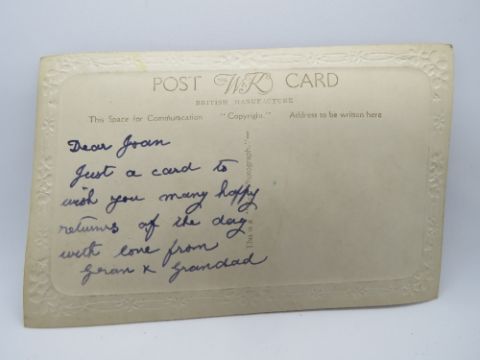 POST WK CARD
BRITISH MANUFACTURE
This Space for Communication "Copyright." Address to be written here
Dear Joan
Just a card to
wish you many happy
returns of the day
with love from
Gran x Grandad
This is a Photograph."